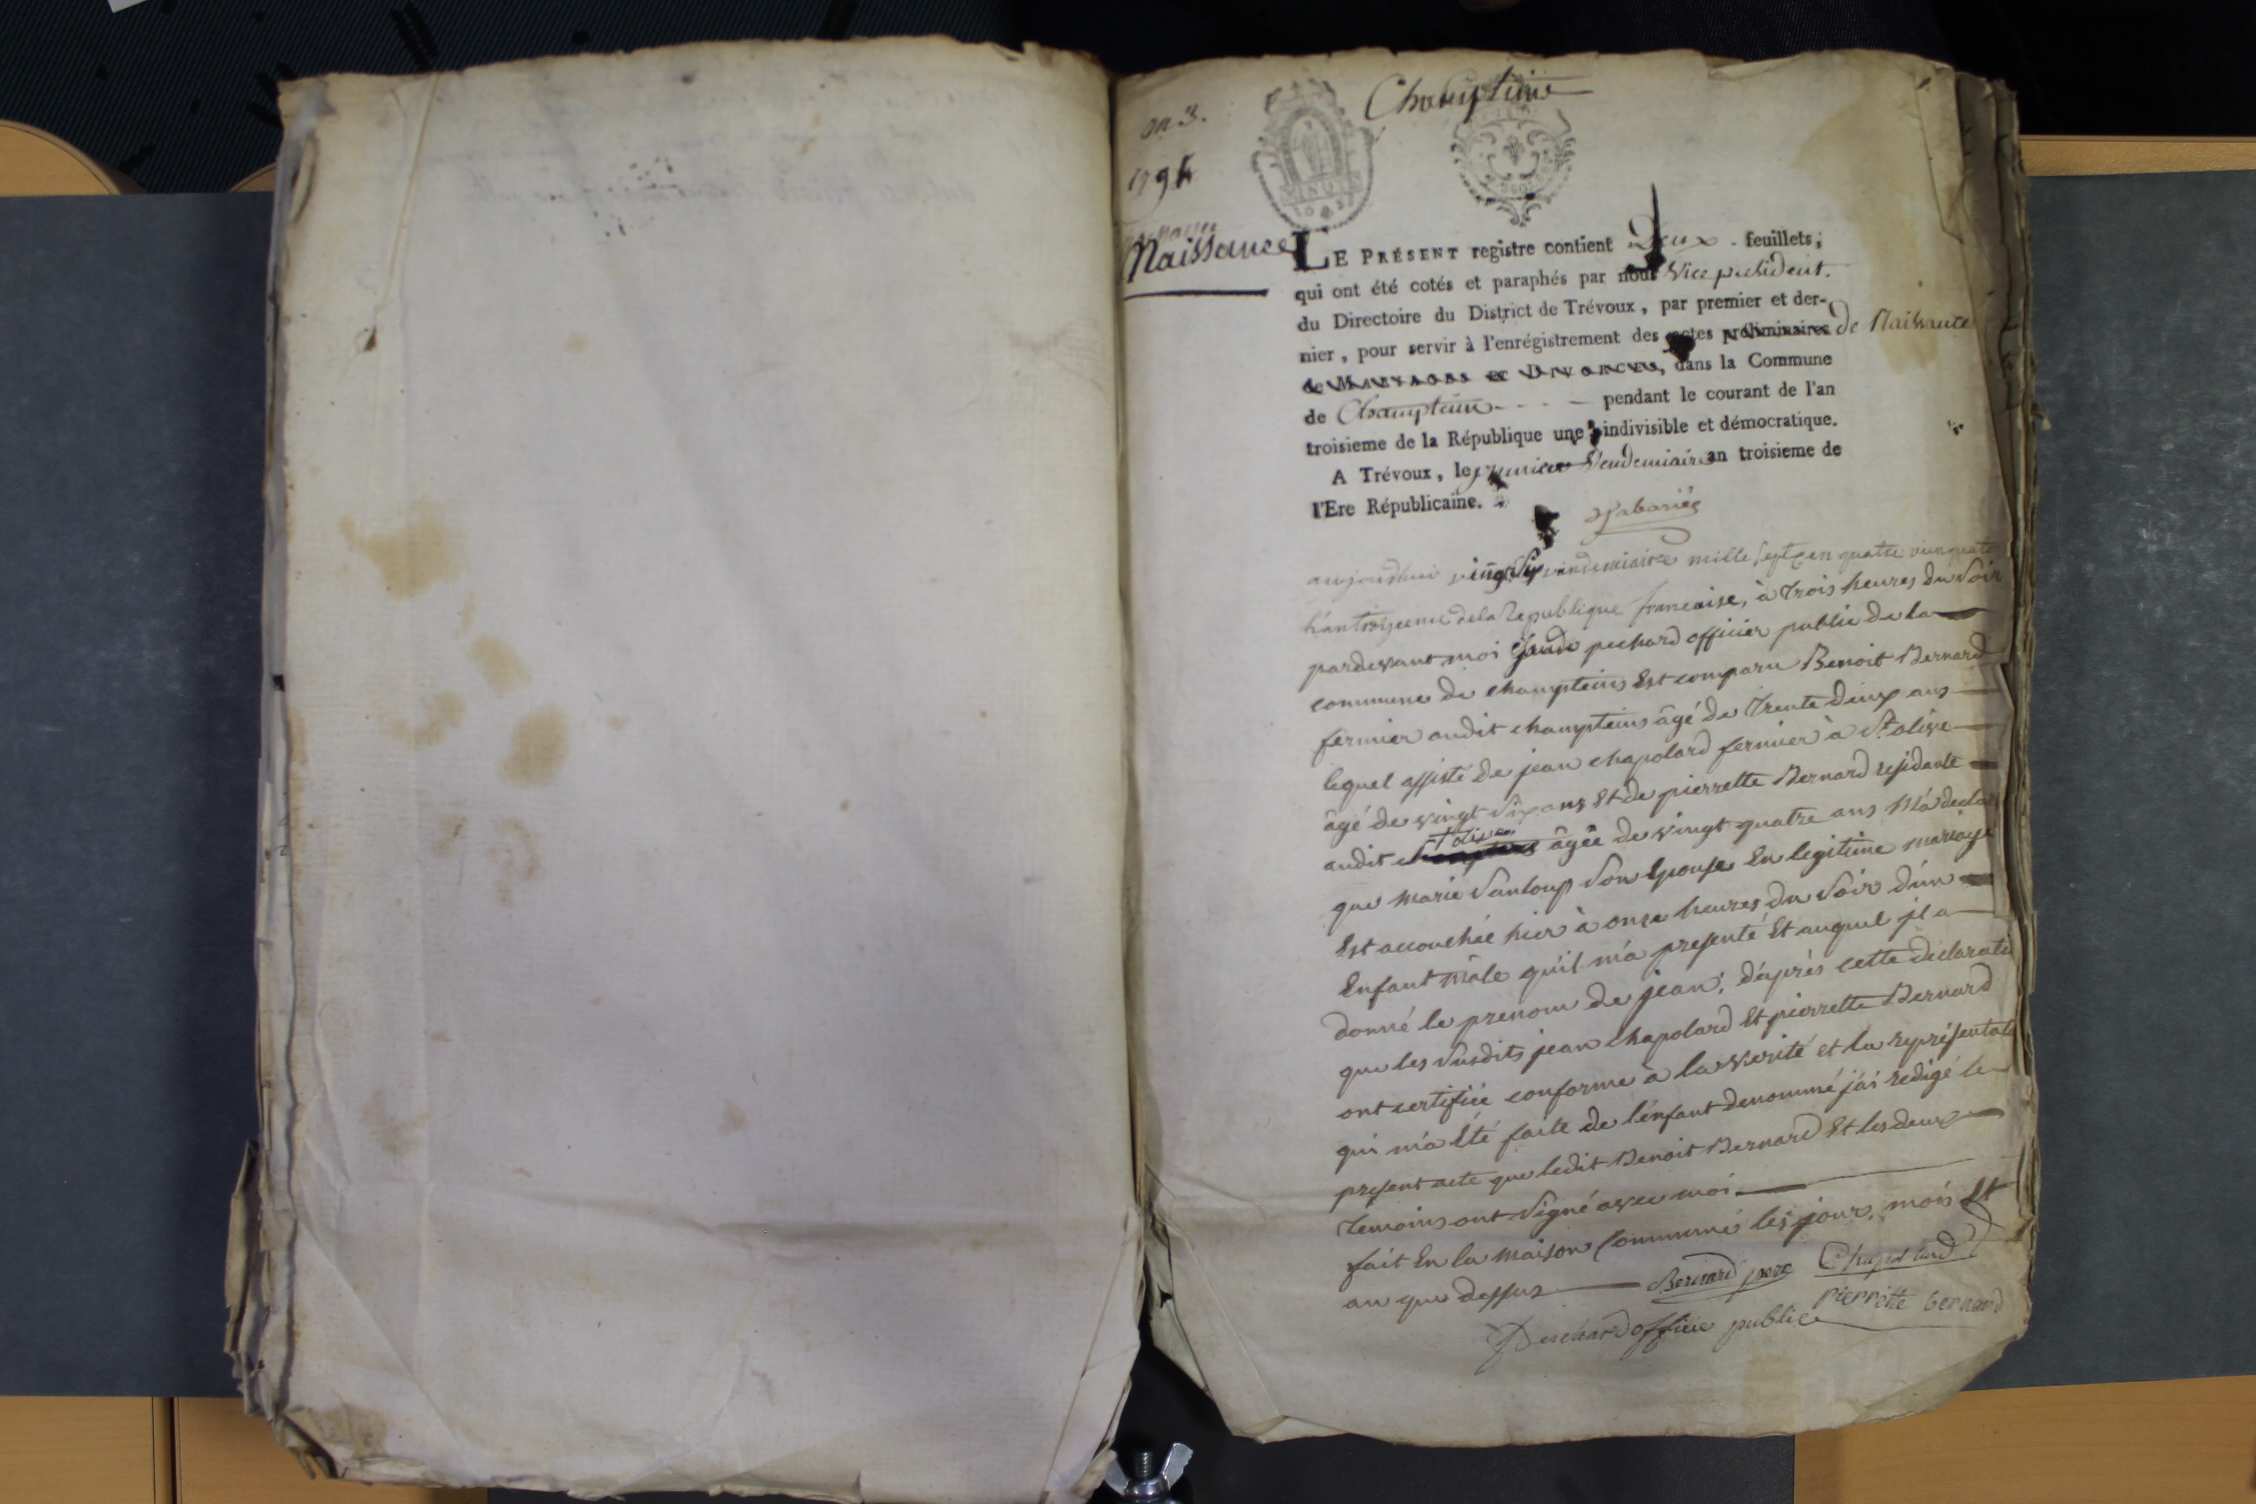 Champtein
an 3.
1794
Naissance
LE PRÉSENT registre contient Deux feuillets;
qui ont été cotés et paraphés par nous Vice president.
du Directoire du District de Trévoux, par premier et der-
nier, pour servir à l'enrégistrement des actes préliminaires de Naissance
de MARIAGES et DIVORCES, dans la Commune
de Champtein pendant le courant de l'an
troisieme de la République une, indivisible et démocratique.
A Trévoux, le premier Vendemiaire an troisieme de
l'Ere Républicaine.
aujourdhui vingt six vendemiaire mille sept cen quatre vingt quatorze
l'an troizieme de la Republique francaise, à trois heures du Soir
pardevant moi Claude pechard officier public de la
commune de champteins Est comparu Benoit Bernard
fermier audit champteins âgé de Trente deux ans
lequel assisté de jean chapolard fermier à St olive
âgé de vingt Six ans Et de pierrette Bernard residante
audit St olive âgée de vingt quatre ans M'a declaré
que Marie Sanloup Son Epouse En legitime mariage
Est accouchée hier à onze heures du Soir d'un
Enfant Mâle qu'il m'a presenté Et auquel il a
donné le prenom de jean, d'après cette declaration
que les Susdits jean chapolard Et pierrette Bernard
ont certifiée conforme à la verité et la représentation
qui m'a Eté faite de l'enfant denommé j'ai redigé le
present acte que ledit Benoit Bernard Et les deux
Temoins ont Signé avec moi
fait En la Maison Commune les jour, mois Et
an que dessus Bernard pere Chapolard
pierrette bernard
Pechard officie public